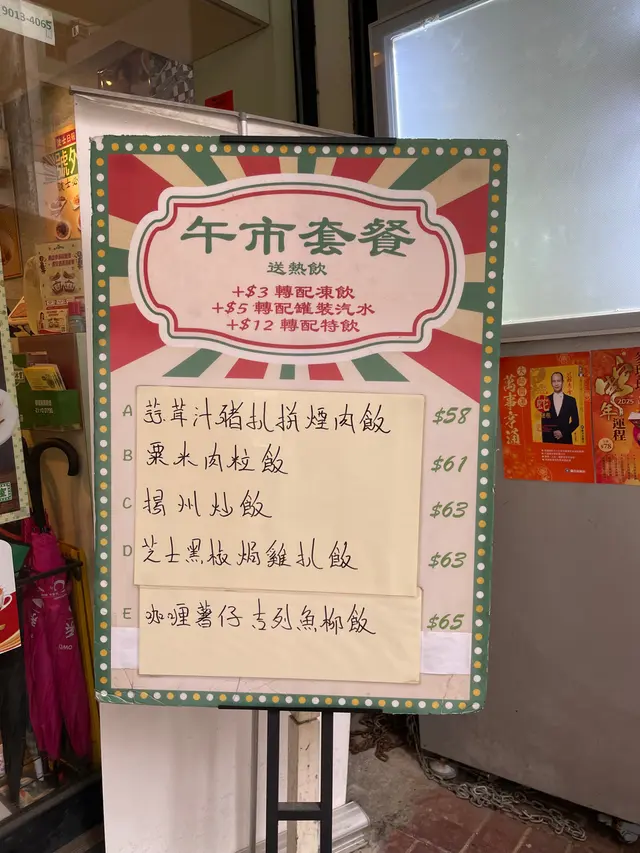 9013-4065
午市套餐
送熱飲
+$3 轉配凍飲
+$5 轉配罐裝汽水
+$12 轉配特飲
A 蒜茸汁豬扒拼煙肉飯 $58
B 粟米肉粒飯 $61
C 揚州炒飯 $63
D 芝士黑椒焗雞扒飯 $63
E 咖喱薯仔吉列魚柳飯 $65
萬事亨通
2025
運程